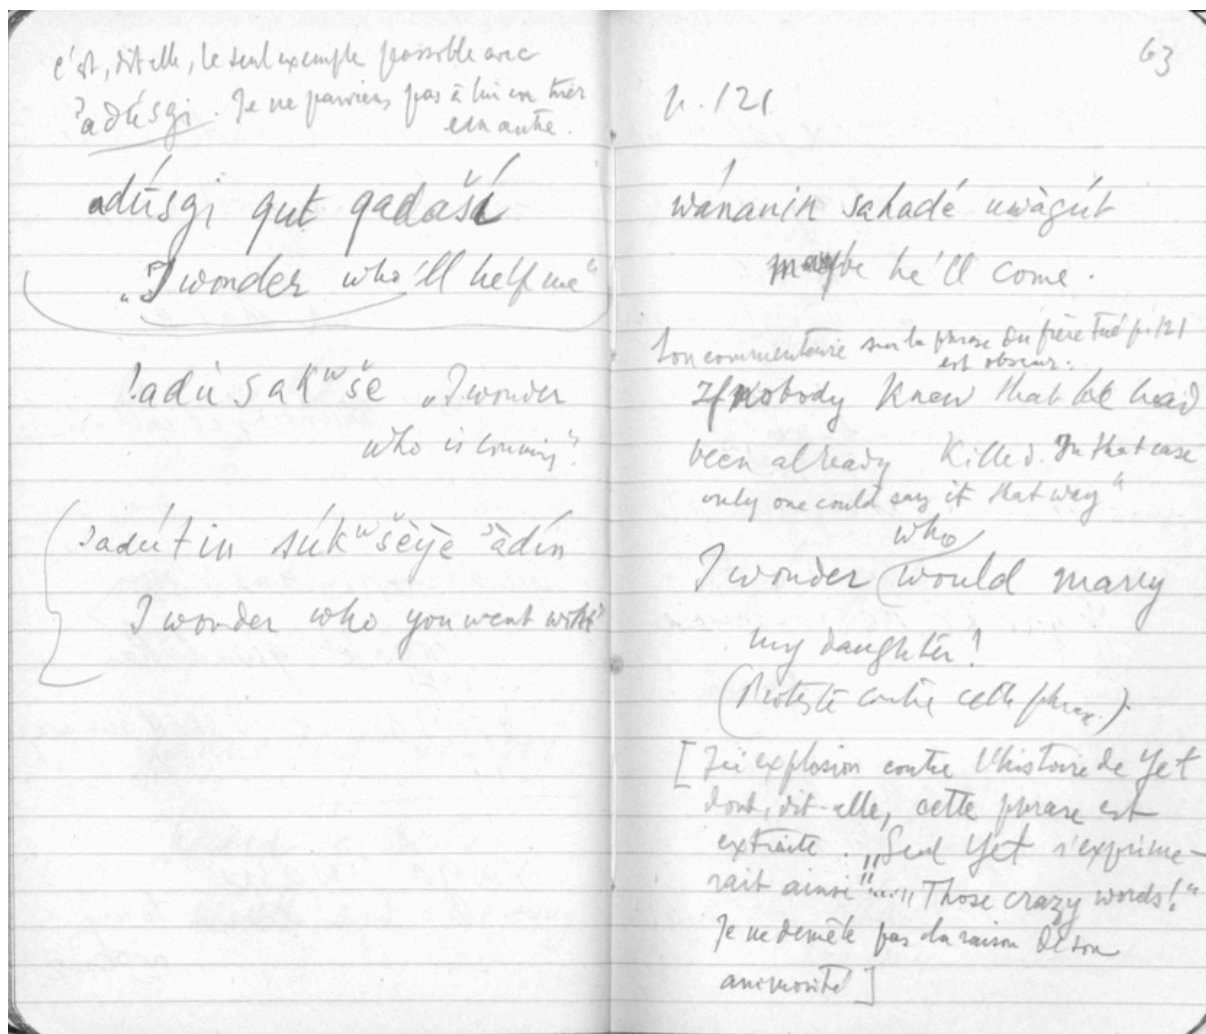 c'est, dit-elle, le seul exemple possible avec
ʔadúsgi. Je ne parviens pas à lui en tirer
un autre.
adúsgi qut qadaší
„I wonder who'll help me"
ʔadúsakʷše „I wonder
who is coming".
ʔadútin súkʷšèye ʔàdín
I wonder who you went with?
63
p. 121
wánanin sahadé uwàgút
maybe he'll come.
Son commentaire sur la phrase du frère tué p. 121
est obscur.
If nobody knew that he had
been already killed. In that case
only one could say it that way"
who
I wonder would marry
my daughter!
(Proteste contre cette phrase.)
[Ici explosion contre l'histoire de Yet
dont, dit-elle, cette phrase est
extraite. „Seul Yet s'exprime-
rait ainsi"....„Those crazy words!"
Je ne démêle pas la raison de son
animosité]